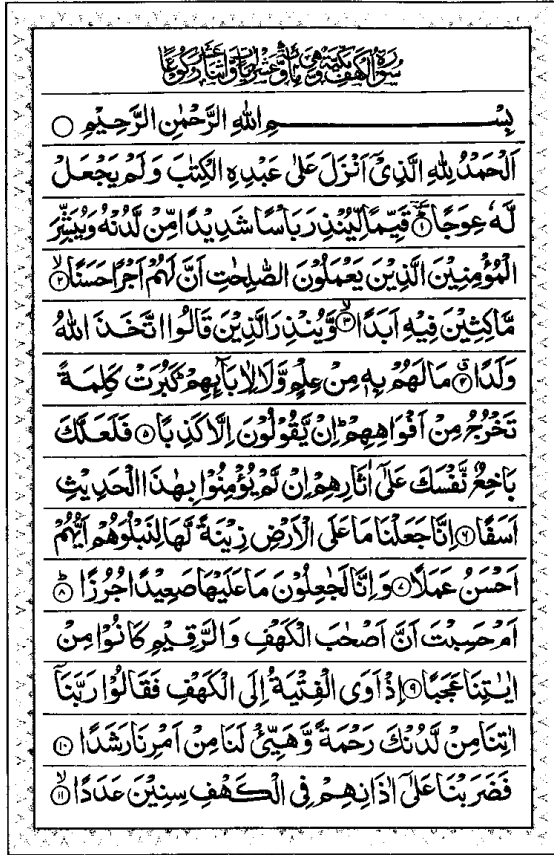 سورة الكهف مكية وهي مائة وعشر اٰيات واثنا عشر ركوعا
بِسْمِ اللهِ الرَّحْمٰنِ الرَّحِيْمِ ○
اَلْحَمْدُ لِلّٰهِ الَّذِيْٓ اَنْزَلَ عَلٰى عَبْدِهِ الْكِتٰبَ وَلَمْ يَجْعَلْ
لَّهٗ عِوَجًا ؕ‏﴿۱﴾ قَيِّمًا لِّيُنْذِرَ بَاْسًا شَدِيْدًا مِّنْ لَّدُنْهُ وَيُبَشِّرَ
الْمُؤْمِنِيْنَ الَّذِيْنَ يَعْمَلُوْنَ الصّٰلِحٰتِ اَنَّ لَهُمْ اَجْرًا حَسَنًا ۙ‏﴿۲﴾
مَّاكِثِيْنَ فِيْهِ اَبَدًا ۙ‏﴿۳﴾ وَّيُنْذِرَ الَّذِيْنَ قَالُوا اتَّخَذَ اللّٰهُ
وَلَدًا ۗ‏﴿۴﴾ مَا لَهُمْ بِهٖ مِنْ عِلْمٍ وَّلَا لِاٰبَآىِٕهِمْ ؕ كَبُرَتْ كَلِمَةً
تَخْرُجُ مِنْ اَفْوَاهِهِمْ ؕ اِنْ يَّقُوْلُوْنَ اِلَّا كَذِبًا ﴿۵﴾ فَلَعَلَّكَ
بَاخِعٌ نَّفْسَكَ عَلٰٓى اٰثَارِهِمْ اِنْ لَّمْ يُؤْمِنُوْا بِهٰذَا الْحَدِيْثِ
اَسَفًا ﴿۶﴾ اِنَّا جَعَلْنَا مَا عَلَى الْاَرْضِ زِيْنَةً لَّهَا لِنَبْلُوَهُمْ اَيُّهُمْ
اَحْسَنُ عَمَلًا ﴿۷﴾ وَاِنَّا لَجٰعِلُوْنَ مَا عَلَيْهَا صَعِيْدًا جُرُزًا ؕ‏﴿۸﴾
اَمْ حَسِبْتَ اَنَّ اَصْحٰبَ الْكَهْفِ وَالرَّقِيْمِ كَانُوْا مِنْ
اٰيٰتِنَا عَجَبًا ﴿۹﴾ اِذْ اَوَى الْفِتْيَةُ اِلَى الْكَهْفِ فَقَالُوْا رَبَّنَآ
اٰتِنَا مِنْ لَّدُنْكَ رَحْمَةً وَّهَيِّئْ لَنَا مِنْ اَمْرِنَا رَشَدًا ﴿۱۰﴾
فَضَرَبْنَا عَلٰٓى اٰذَانِهِمْ فِى الْكَهْفِ سِنِيْنَ عَدَدًا ۙ‏﴿۱۱﴾